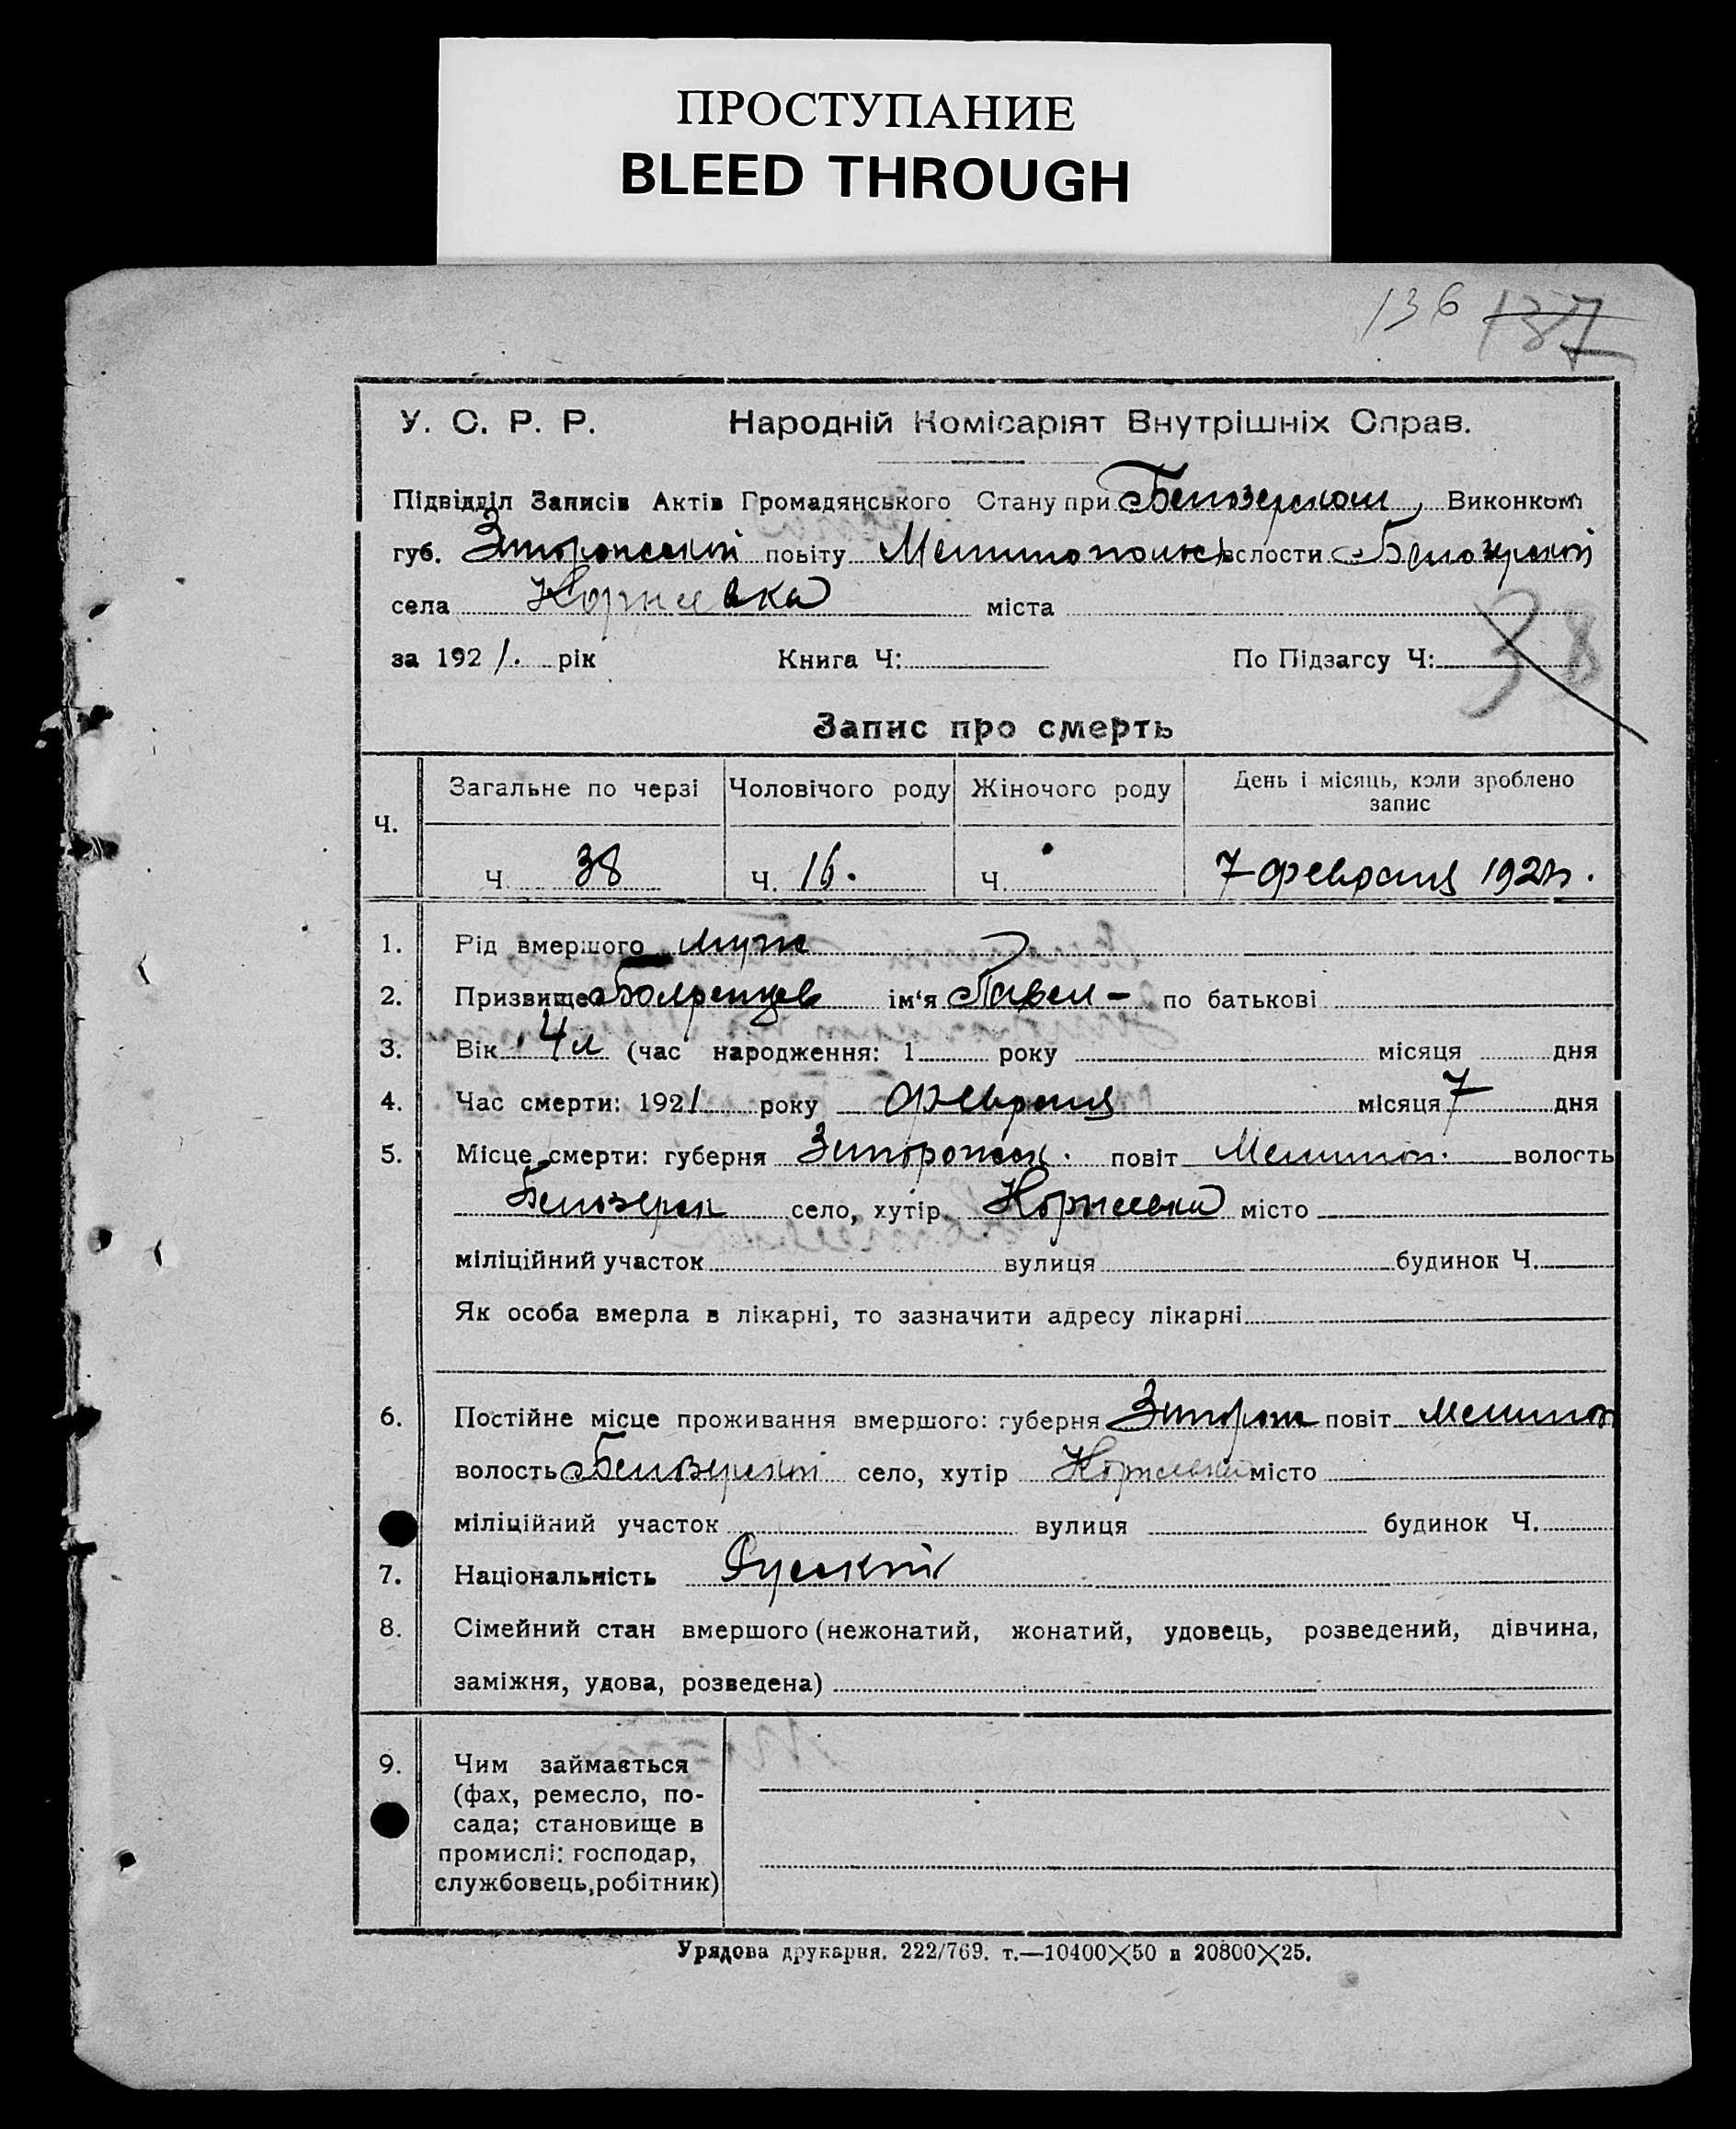 ПРОСТУПАНИЕ
BLEED THROUGH
136 137
У. С. Р. Р. Народній Комісаріят Внутрішніх Справ.
Підвідділ Записів Актів Громадянського Стану при Белозерском Виконкомі
губ. Запорожской повіту Мелитопольск волости Белозерской
села Корнеевка міста
за 1921. рік Книга Ч: По Підзагсу Ч: 38
Запис про смерть
Ч. Загальне по черзі Чоловічого роду Жіночого роду День і місяць, коли зроблено запис
Ч. 38 Ч. 16. Ч. 7 февраля 1921 г.
1. Рід вмершого муж
2. Призвище ім‘я Павел - по батькові
3. Вік 4 л (час народження: 1 року місяця дня
4. Час смерти: 1921 року февраля місяця 7 дня
5. Місце смерти: губерня Запорожск. повіт Мелитоп. волость
Белозерск село, хутір Корнеевка місто
міліційний участок вулиця будинок Ч.
Як особа вмерла в лікарні, то зазначити адресу лікарні
6. Постійне місце проживання вмершого: губерня Запорож повіт Мелитоп
волость Белозерской село, хутір Корнеевка місто
міліційний участок вулиця будинок Ч.
7. Національність Русский
8. Сімейний стан вмершого (нежонатий, жонатий, удовець, розведений, дівчина,
заміжня, удова, розведена)
9. Чим займається
(фах, ремесло, по-
сада; становище в
промислі: господар,
службовець, робітник)
Урядова друкарня. 222/769. т.—10400×50 и 20800×25.